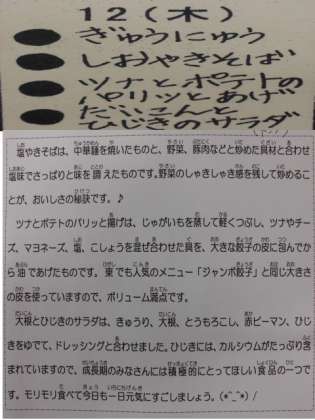 12(木)
ぎゅうにゅう
しおやきそば
ツナとポテトの
パリッとあげ
だいこんと
ひじきのサラダ
塩やきそばは、中華麺を焼いたものと、野菜、豚肉などと炒めた具材と合わせ
塩味でさっぱりと味を調えたものです。野菜のしゃきしゃき感を残して炒めるこ
とが、おいしさの秘訣です。♪
ツナとポテトのパリッと揚げは、じゃがいもを蒸して軽くつぶし、ツナやチー
ズ、マヨネーズ、塩、こしょうを混ぜ合わせた具を、大きな餃子の皮に包んでか
ら油であげたものです。東でも人気のメニュー「ジャンボ餃子」と同じ大きさ
の皮を使っていますので、ボリューム満点です。
大根とひじきのサラダは、きゅうり、大根、とうもろこし、赤ピーマン、ひじ
きをゆでて、ドレッシングと合わせました。ひじきには、カルシウムがたっぷり含
まれていますので、成長期のみなさんには積極的にとってほしい食品の一つで
す。モリモリ食べて今日も一日元気にすごしましょう。(*^_^*)/